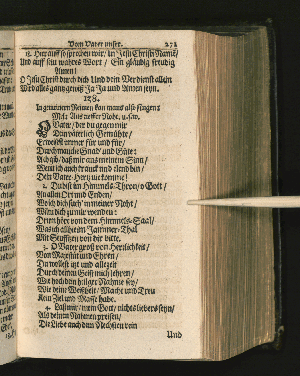 Vom Vater unser. 271
8. Hierauf so sprechen wir / in Jesu Christi Nahmen /
Und auff sein wahres Wort / Ein gläubig freudig
Amen!
O Jesu Christ durch dich Und dein Verdienst allein
Wird alles gantz gewiß Ja Ja und Amen seyn.
128.
In gemeinen Reimen kan mans also singen:
Mel: Aus tieffer Noht, u.s.w.
O Vater / der du gegen mir
Ein väterlich Gemühte /
Erweisest immer für und für /
Durch manche Gnad' und Güte:
Ach gib / daß mir aus meinem Sinn /
Wenn ich auch kranck und elend bin /
Dein Vater-Hertz nie komme!
2. Du bist im Himmels-Thron / o Gott /
An allen Ort und Enden /
Wenn dich zu mir wenden:
Drum hör von dem Himmels-Saal /
Was ich allhie im Jammer-Thal
Mit Seufftzen von dir bitte.
3. O Vater groß von Herrligkeit /
Von Majestät und Ehren /
Du wollest itzt und allezeit
Durch deinen Geist mich lehren /
Wie hoch dein heilger Nahme sey /
Wie deine Weißheit / Macht und Treu
Kein Ziel und Masse habe.
4. Laß mir / mein Gott / nichts liebers seyn /
Als deinen Nahmen preisen /
Die Liebe nach dem Nechsten rein
Und